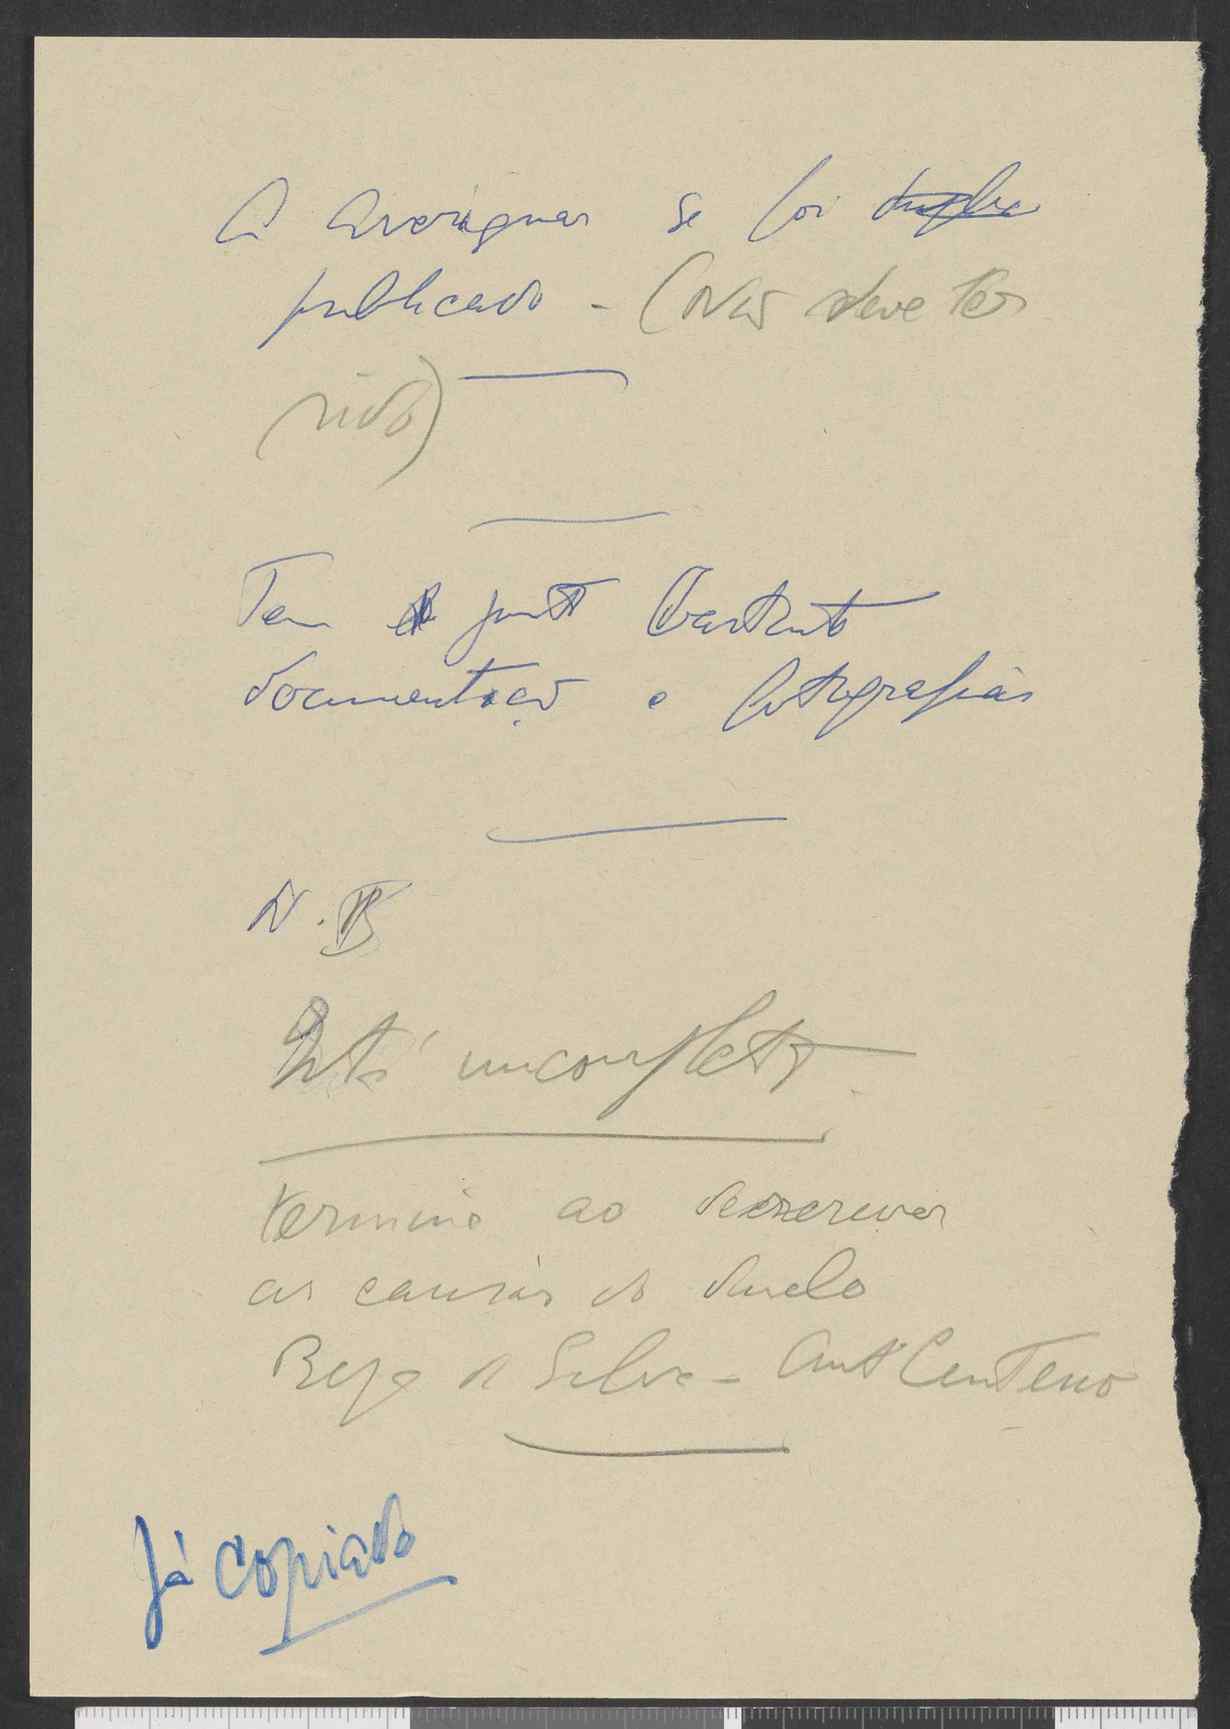 A averiguar se foi
publicado - (Não deve ter
sido)
Tem junto bastante
documentação e fotografias
N.B
Está incompleto
termina ao descrever
as causas do duelo
Beja da Silva - Ant Centeno
Já copiado